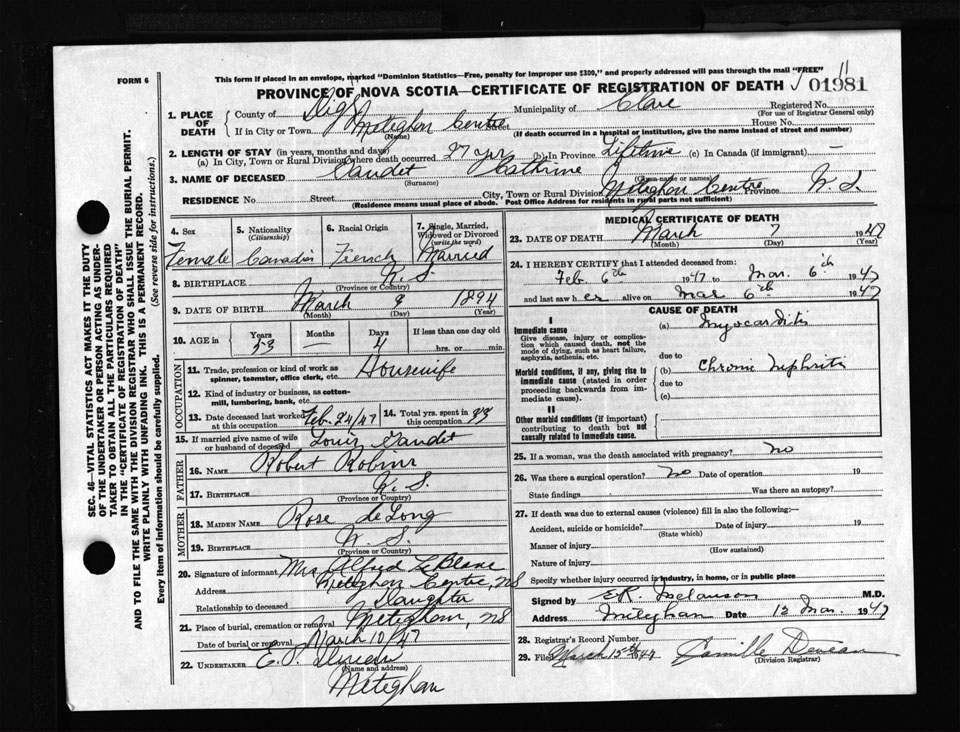 FORM 6
This form if placed in an envelope, marked "Dominion Statistics—Free, penalty for improper use $300," and properly addressed will pass through the mail "FREE"
PROVINCE OF NOVA SCOTIA—CERTIFICATE OF REGISTRATION OF DEATH 01981
1. PLACE OF DEATH
County of Digby Municipality of Clare Registered No.
(For use of Registrar General only)
If in City or Town Meteghan Centre House No.
(Name) (If death occurred in a hospital or institution, give the name instead of street and number)
2. LENGTH OF STAY (in years, months and days)
(a) In City, Town or Rural Division where death occurred 27 yrs (b) In Province Lifetime (c) In Canada (if immigrant) —
3. NAME OF DECEASED Gaudet Catherine
(Surname) (Given name or names)
RESIDENCE No. Street City, Town or Rural Division Meteghan Centre Province N.S.
(Residence means usual place of abode. Post Office Address for residents in rural parts not sufficient)
4. Sex Female
5. Nationality (Citizenship) Canadian
6. Racial Origin French
7. Single, Married, Widowed or Divorced (write the word) Married
8. BIRTHPLACE N.S.
(Province or Country)
9. DATE OF BIRTH March 1894
(Month) (Day) (Year)
10. AGE in Years 53 Months — Days 4 If less than one day old hrs. or min.
OCCUPATION
11. Trade, profession or kind of work as spinner, teamster, office clerk, etc. Housewife
12. Kind of industry or business, as cotton-mill, lumbering, bank, etc.
13. Date deceased last worked at this occupation Feb. 24/47
14. Total yrs. spent in this occupation
15. If married give name of wife or husband of deceased Louis Gaudet
FATHER
16. NAME Robert Robins
17. BIRTHPLACE N.S.
(Province or Country)
MOTHER
18. MAIDEN NAME Rose deLong
19. BIRTHPLACE N.S.
(Province or Country)
20. Signature of informant Mrs Alfred LeBlanc
Address Meteghan Centre, NS
Relationship to deceased Daughter
21. Place of burial, cremation or removal Meteghan, NS
Date of burial or removal March 10/47
22. UNDERTAKER E.
(Name and address)
Meteghan
MEDICAL CERTIFICATE OF DEATH
23. DATE OF DEATH March 7 194
(Month) (Day) (Year)
24. I HEREBY CERTIFY that I attended deceased from:
Feb 6th 1947 to Mar. 6th 1947
and last saw her alive on Mar 6th 1947
CAUSE OF DEATH
I
Immediate cause
Give disease, injury or complication which caused death, not the mode of dying, such as heart failure, asphyxia, asthenia, etc.
(a) Myocarditis
due to
Morbid conditions, if any, giving rise to immediate cause (stated in order proceeding backwards from immediate cause).
(b) Chronic Nephritis
due to
(c)
II
Other morbid conditions (if important) contributing to death but not causally related to immediate cause.
25. If a woman, was the death associated with pregnancy? no
26. Was there a surgical operation? no Date of operation 19
State findings Was there an autopsy?
27. If death was due to external causes (violence) fill in also the following:—
Accident, suicide or homicide? Date of injury 19
(State which)
Manner of injury
(How sustained)
Nature of injury
Specify whether injury occurred in industry, in home, or in public place
Signed by E.R. Melanson M.D.
Address Meteghan Date 12 Mar. 1947
28. Registrar's Record Number
29. Filed March 15th 1947 Camille
(Division Registrar)
SEC. 46—VITAL STATISTICS ACT MAKES IT THE DUTY
OF THE UNDERTAKER OR PERSON ACTING AS UNDER-
TAKER TO OBTAIN ALL THE PARTICULARS REQUIRED
IN THE "CERTIFICATE OF REGISTRATION OF DEATH"
AND TO FILE THE SAME WITH THE DIVISION REGISTRAR WHO SHALL ISSUE THE BURIAL PERMIT.
WRITE PLAINLY WITH UNFADING INK. THIS IS A PERMANENT RECORD.
Every item of information should be carefully supplied. (See reverse side for instructions.)